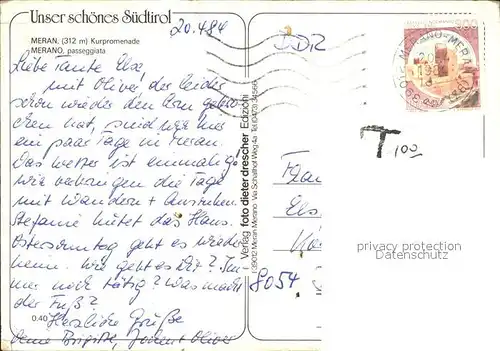 Unser schönes Südtirol
MERAN, (312 m) Kurpromenade
MERANO, passeggiata
20.4.84
Liebe Tante Else,
mit Oliver, der leider
schon wieder den Arm gebro-
chen hat, sind wir für
ein paar Tage in Meran.
Das Wetter ist einmalig.
Wir verbringen die Tage
mit Wandern + Ausruhen.
Stefanie hütet das Haus.
Ostersonntag geht es wieder
heim. Wie geht es Dir? Im-
mer noch tätig? Was macht
der Fuß?
Herzliche Grüße
Deine Brigitte, Jochen + Oliver
0.40
Verlag foto dieter drescher Edizioni
I-39012 Meran/Merano Via Schafhof Weg 4a Tel.
DDR
MERANO-MERAN
T 100
Frau
Els
8054
privacy protection
Datenschutz